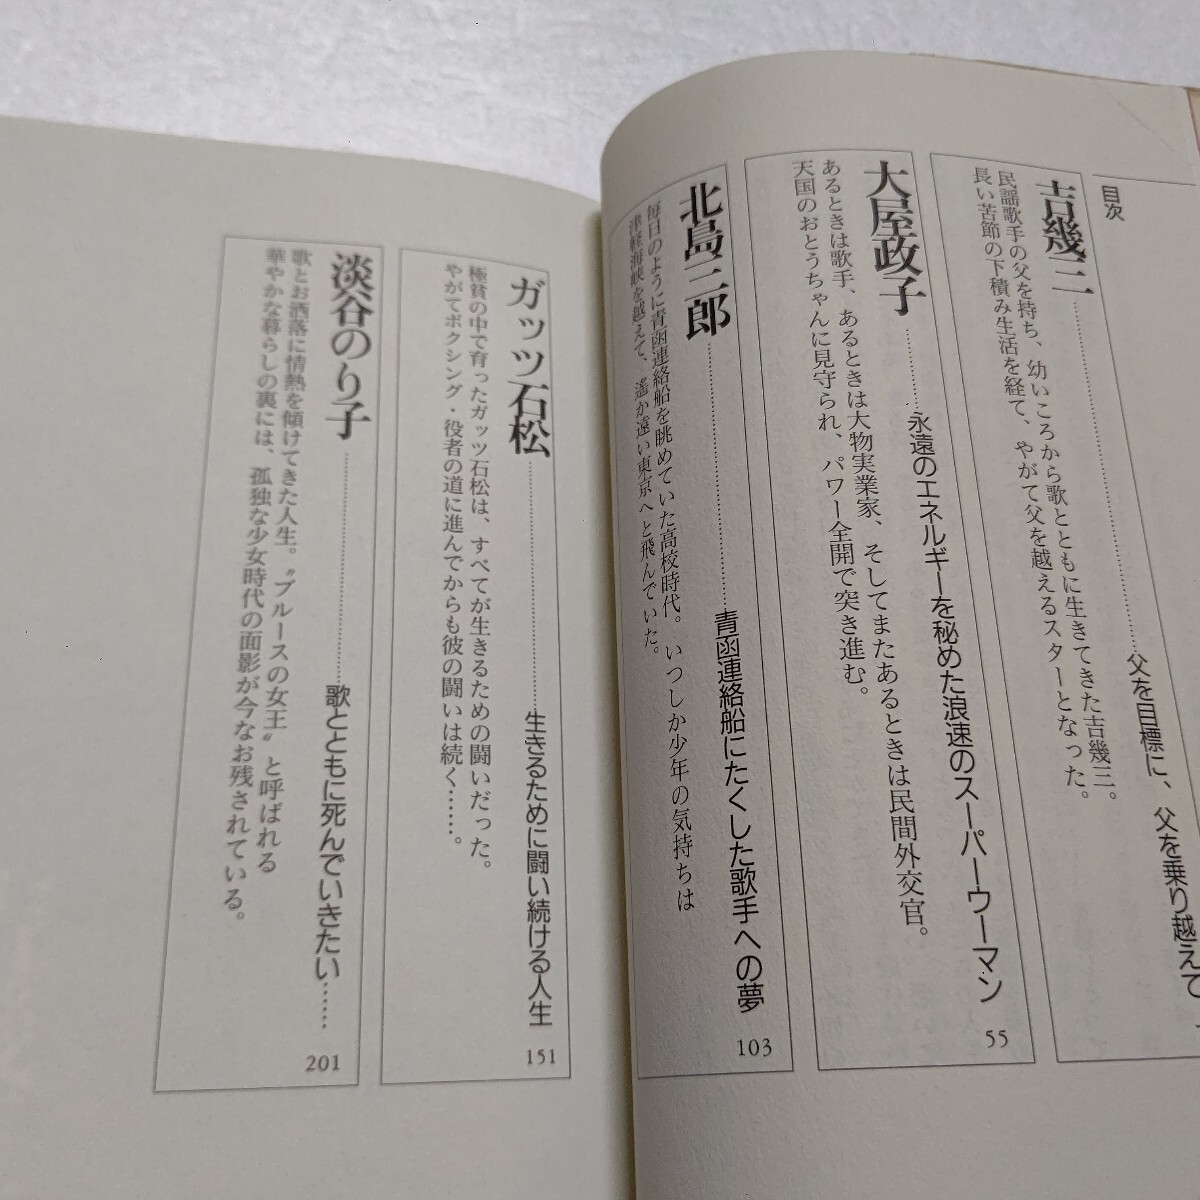 目次
吉幾三……父を目標に、父を乗り越えて
民謡歌手の父を持ち、幼いころから歌とともに生きてきた吉幾三。
長い苦節の下積み生活を経て、やがて父を越えるスターとなった。
大屋政子……永遠のエネルギーを秘めた浪速のスーパーウーマン 55
あるときは歌手、あるときは大物実業家、そしてまたあるときは民間外交官。
天国のおとうちゃんに見守られ、パワー全開で突き進む。
北島三郎……青函連絡船にたくした歌手への夢 103
毎日のように青函連絡船を眺めていた高校時代。いつしか少年の気持ちは
津軽海峡を越えて、遙か遠い東京へと飛んでいた。
ガッツ石松……生きるために闘い続ける人生 151
極貧の中で育ったガッツ石松は、すべてが生きるための闘いだった。
やがてボクシング・役者の道に進んでからも彼の闘いは続く……。
淡谷のり子……歌とともに死んでいきたい…… 201
歌とお洒落に情熱を傾けてきた人生。〝ブルースの女王〟と呼ばれる
華やかな暮らしの裏には、孤独な少女時代の面影が今なお残されている。